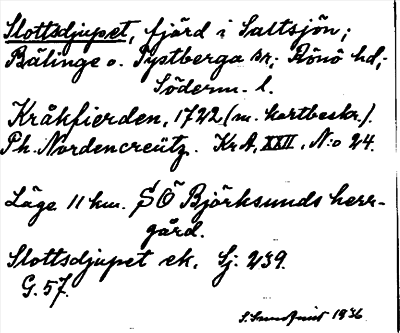 Slottsdjupet, fjärd i Saltsjön;
Bälinge o. Tystberga sn; Rönö hd;
Söderm. l.
Kråkfierden, 1722 (m. kartbeskr.).
Ph. Nordencreütz. KrA, XXII, N:o 24.
Läge 11 km. SÖ Björksunds herr-
gård.
Slottsdjupet ek. Sj. 239.
G. 57.
S. 1936